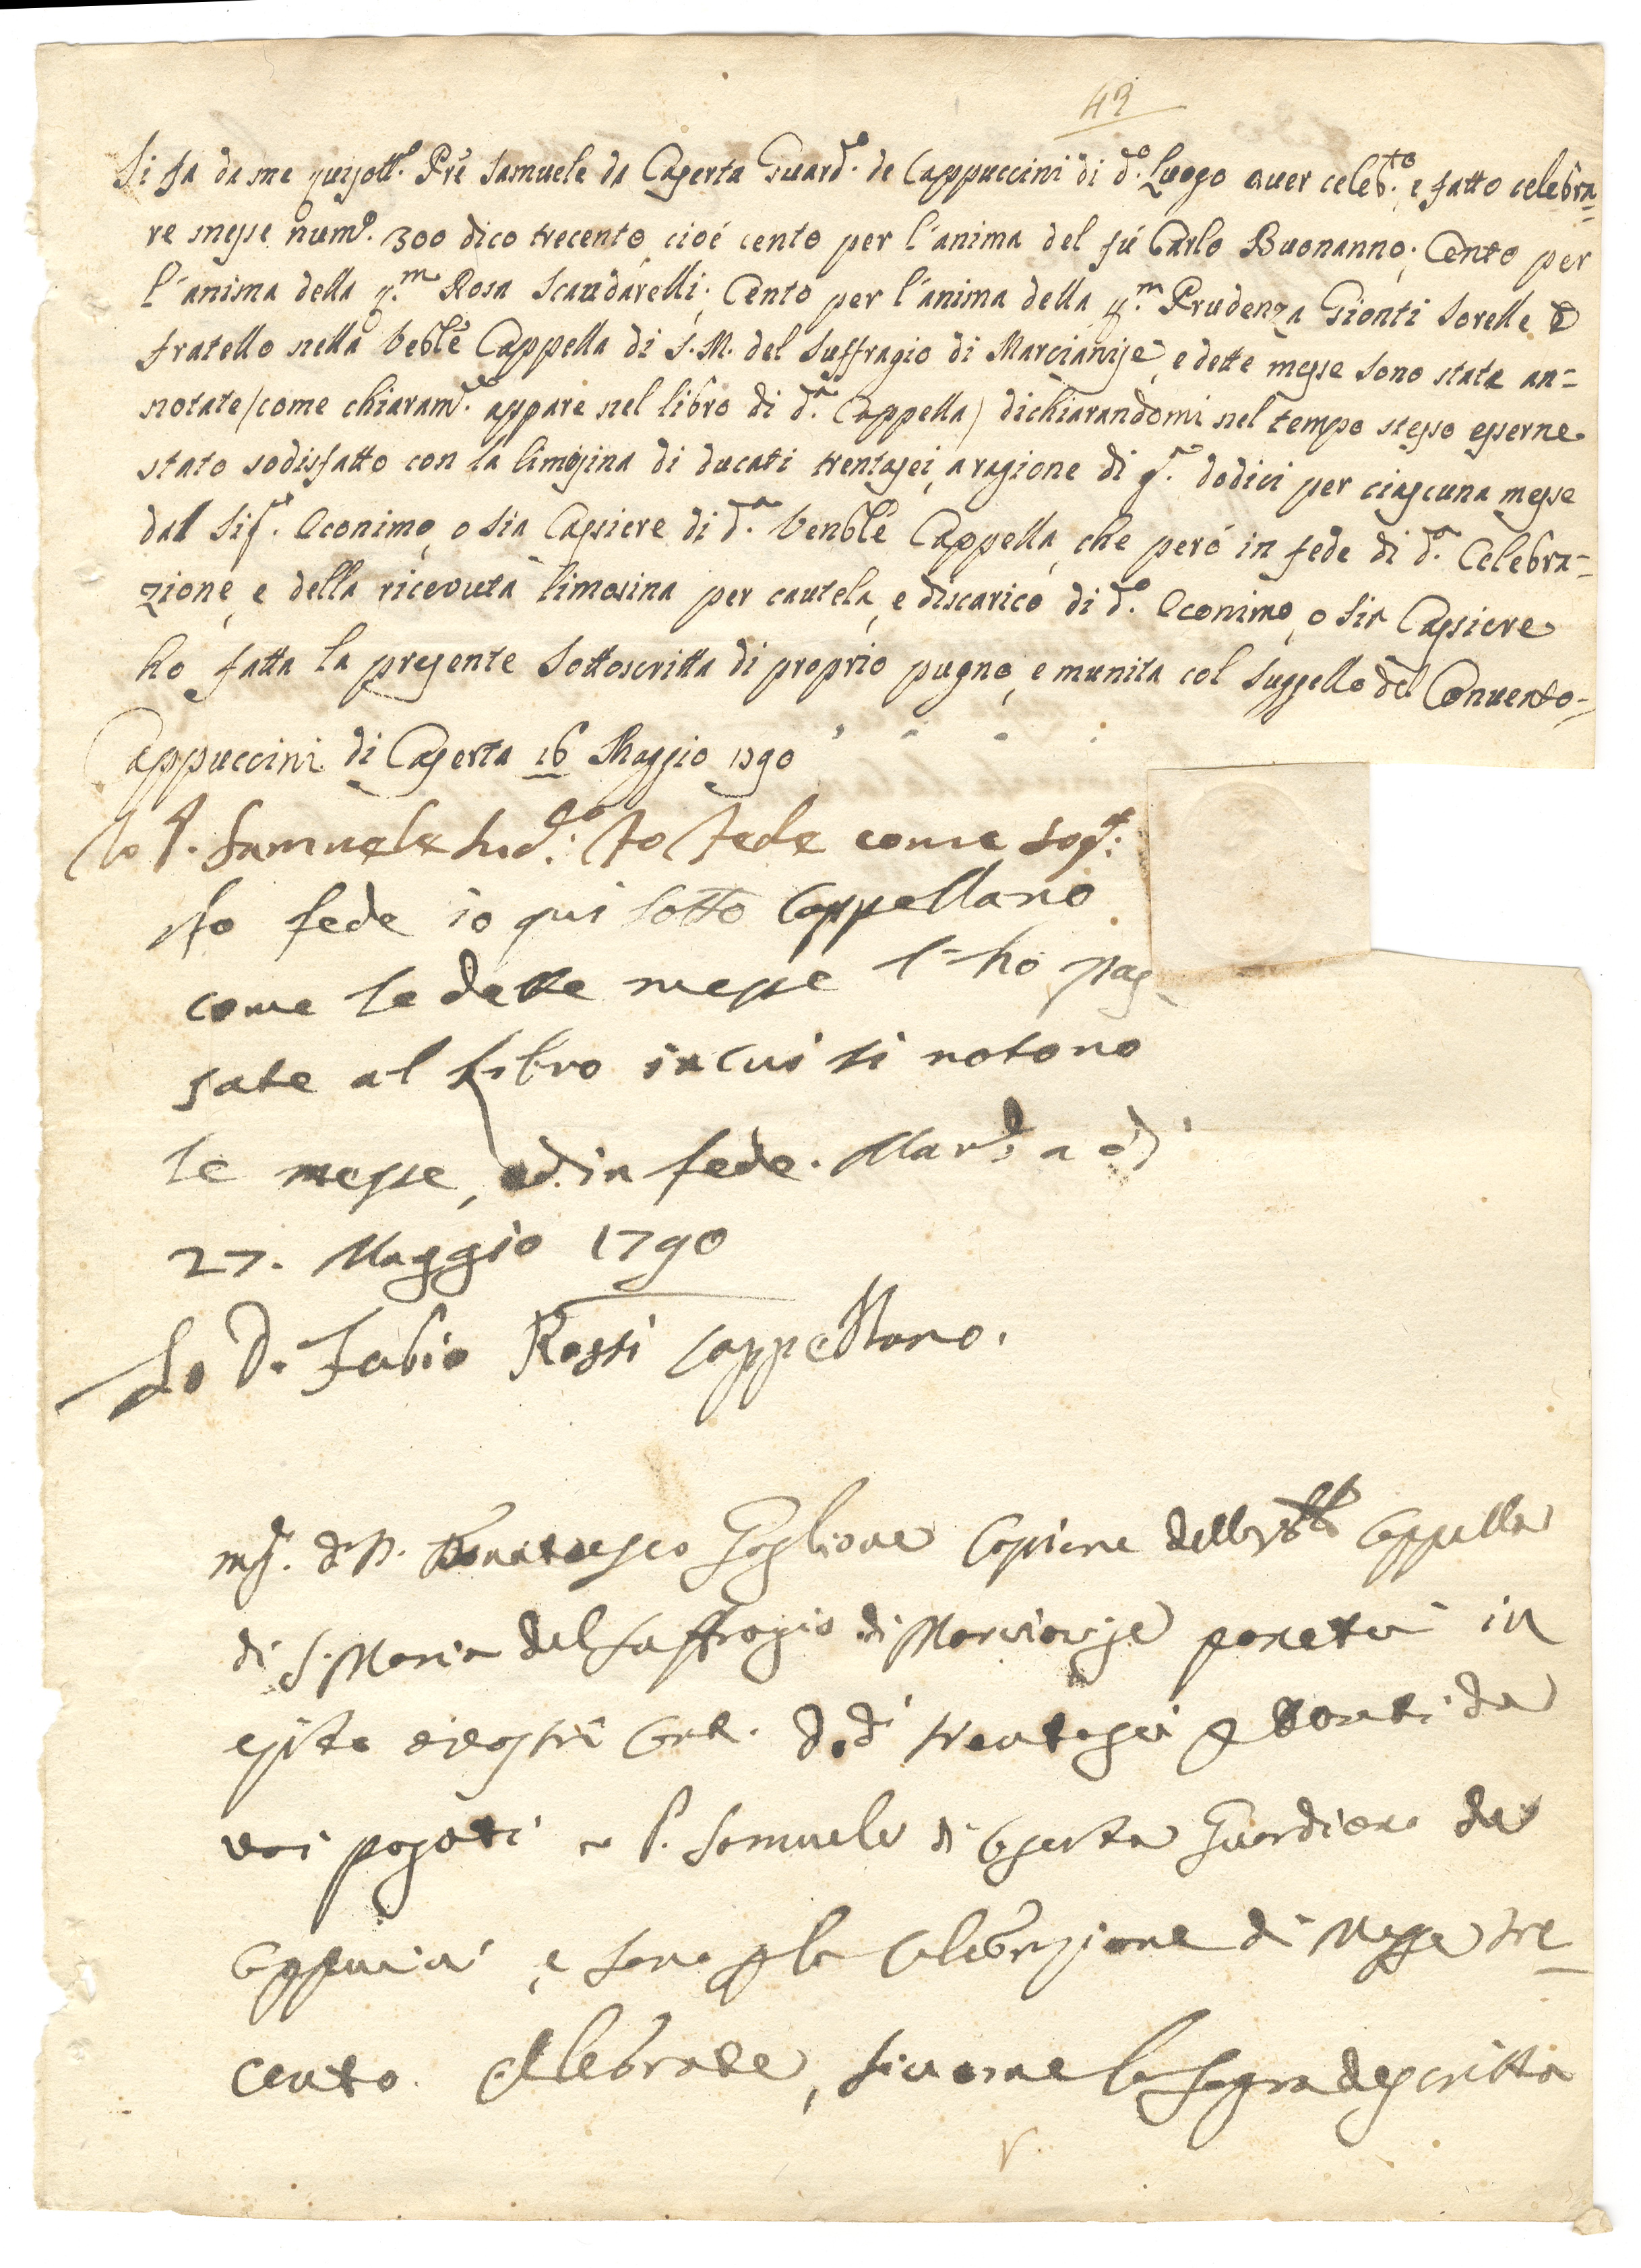 49
Si fa da me Pr̃e Samuele da Caserta Guard.o de Cappuccini di d.o Luogo aver celeb.to, e fatto celebra=
re messe num.o 300 dico trecento, cioé cento per l'anima del fú Carlo Buonanno; Cento per
l'anima della q.m Rosa Scaudarelli; Cento per l'anima della q.m Prudenza Gionti Sorelle, e
fratello nella Veñble Cappella di S. M. del Suffragio di Marcianise, e dette messe sono state an=
notate (come chiaram.te appare nel libro di d.a Cappella) dichiarandomi nel tempo stesso esserne
stato sodisfatto con la limosina di ducati trentasei, a ragione di g.a dodici per ciascuna messe
dal Sig.e Econimo, o sia Cassiere di d.a Venble Cappella, che peró in fede di d.a Celebra=
zione, e della ricevuta limosina per cautela, e discarico di d.o Econimo, o sia Cassiere
ho fatta la presente sottoscritta di proprio pugno, e munita col suggello del Convento=
Cappuccini di Caserta 16 Maggio 1790
Io P. Samuele sud.o fo fede come sop.a
Fo fede io qui sotto Cappellano
come le dette messe l'ho pas=
sate al Libro in cui si notono
le messe, ed in fede. Marc.e a dì
27. Maggio 1790
Io D. Fabio Rossi Cappellano.
Foglione Cassiere della Cappella
di S. Maria del Suffragio di Marcianise ponete in
esito Cont. D.ti trentasei da
voi pagati a P. Samuele di Caserta Guardiano de
Cappuccini, e sono p la Celebrazione di Messe tre=
cento celebrate, sicome la sopradescritta